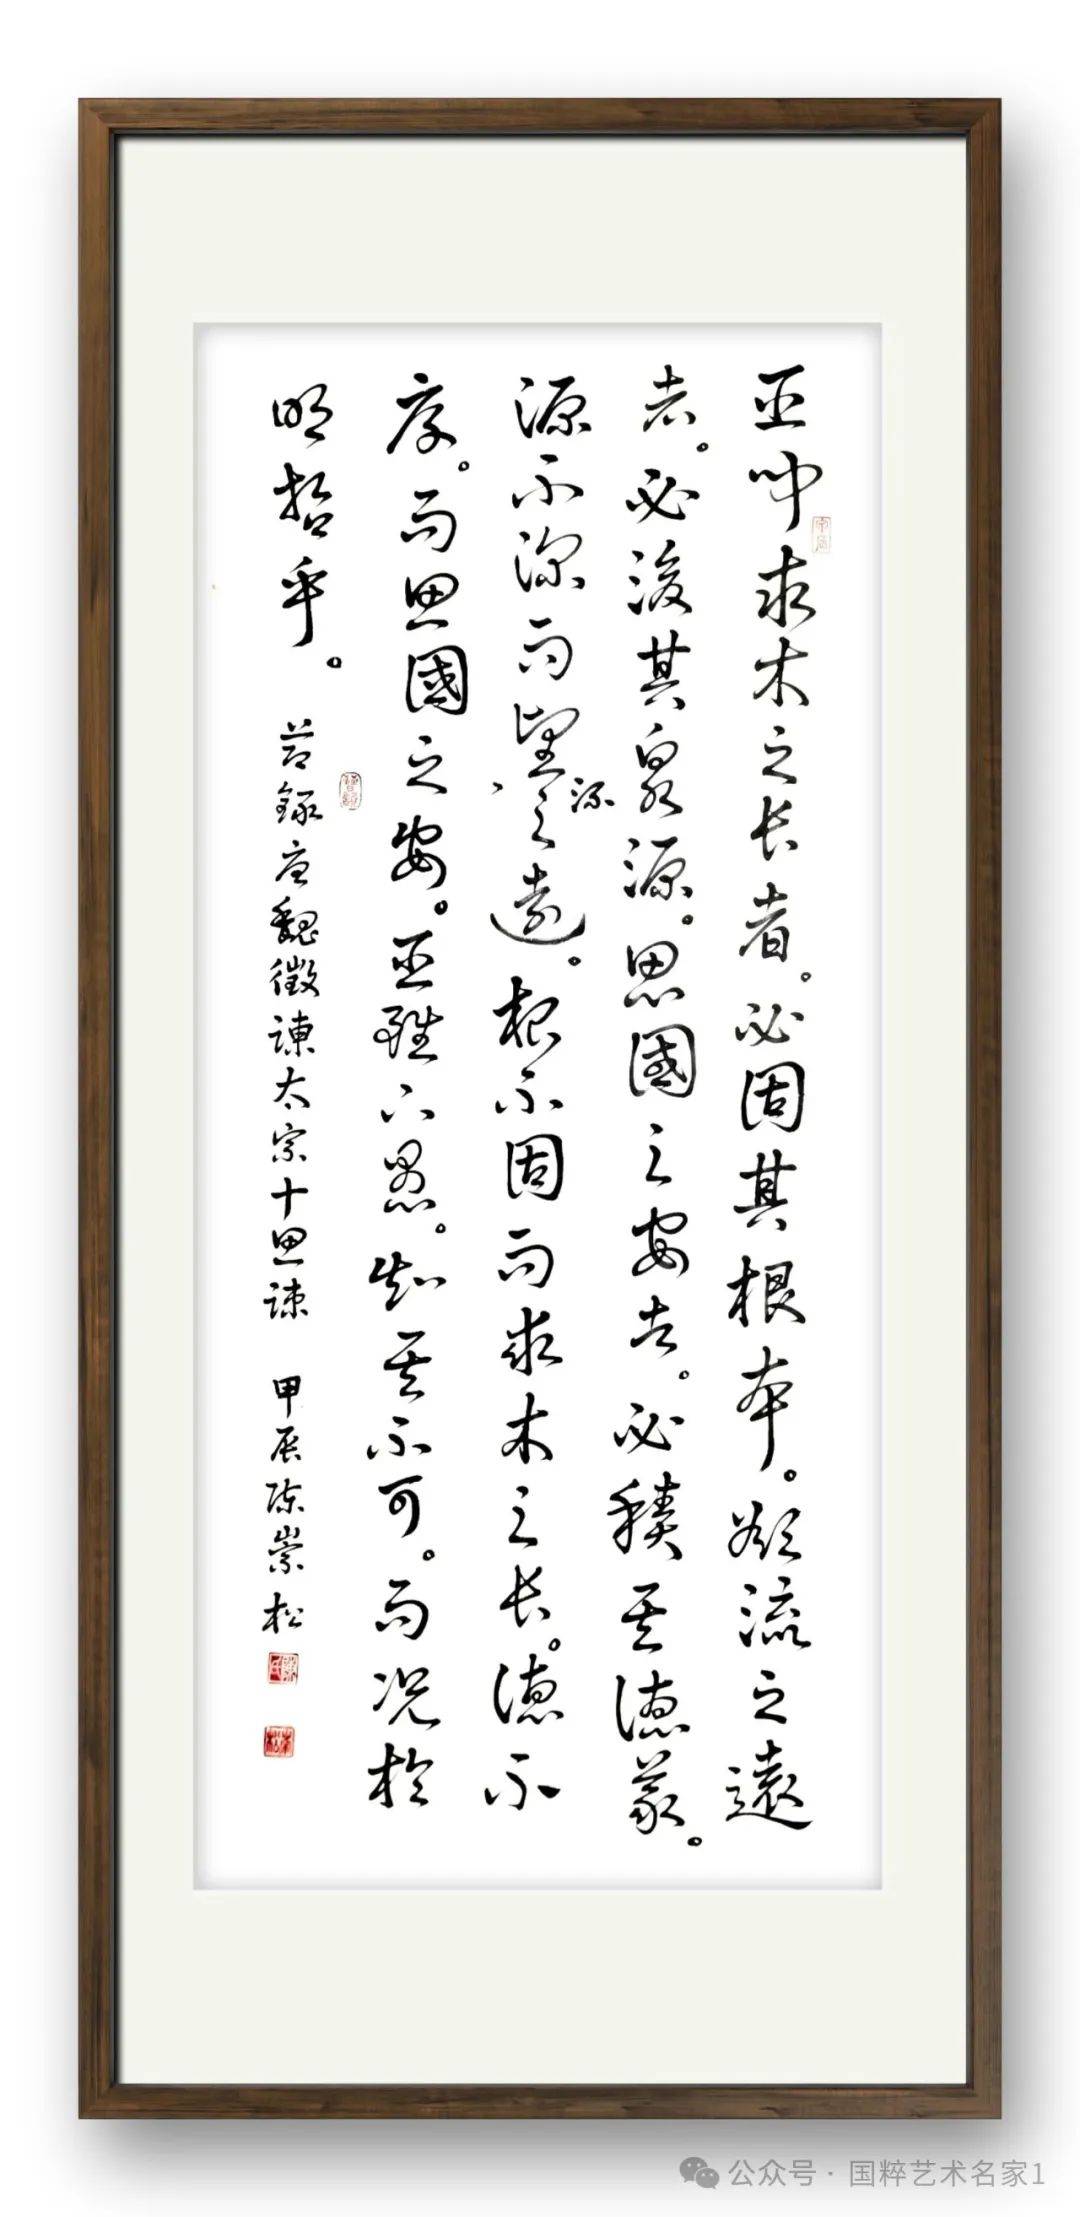 臣聞求木之长者。必固其根本。欲流之遠
者。必浚其泉源。思國之安者。必積其德義。
源不深而望流之遠。根不固而求木之长。德不
厚。而思國之安。臣雖下愚。知其不可。而况於
明哲乎。 节錄唐魏徵諫太宗十思疏 甲辰陈崇松
公众号 · 国粹艺术名家1